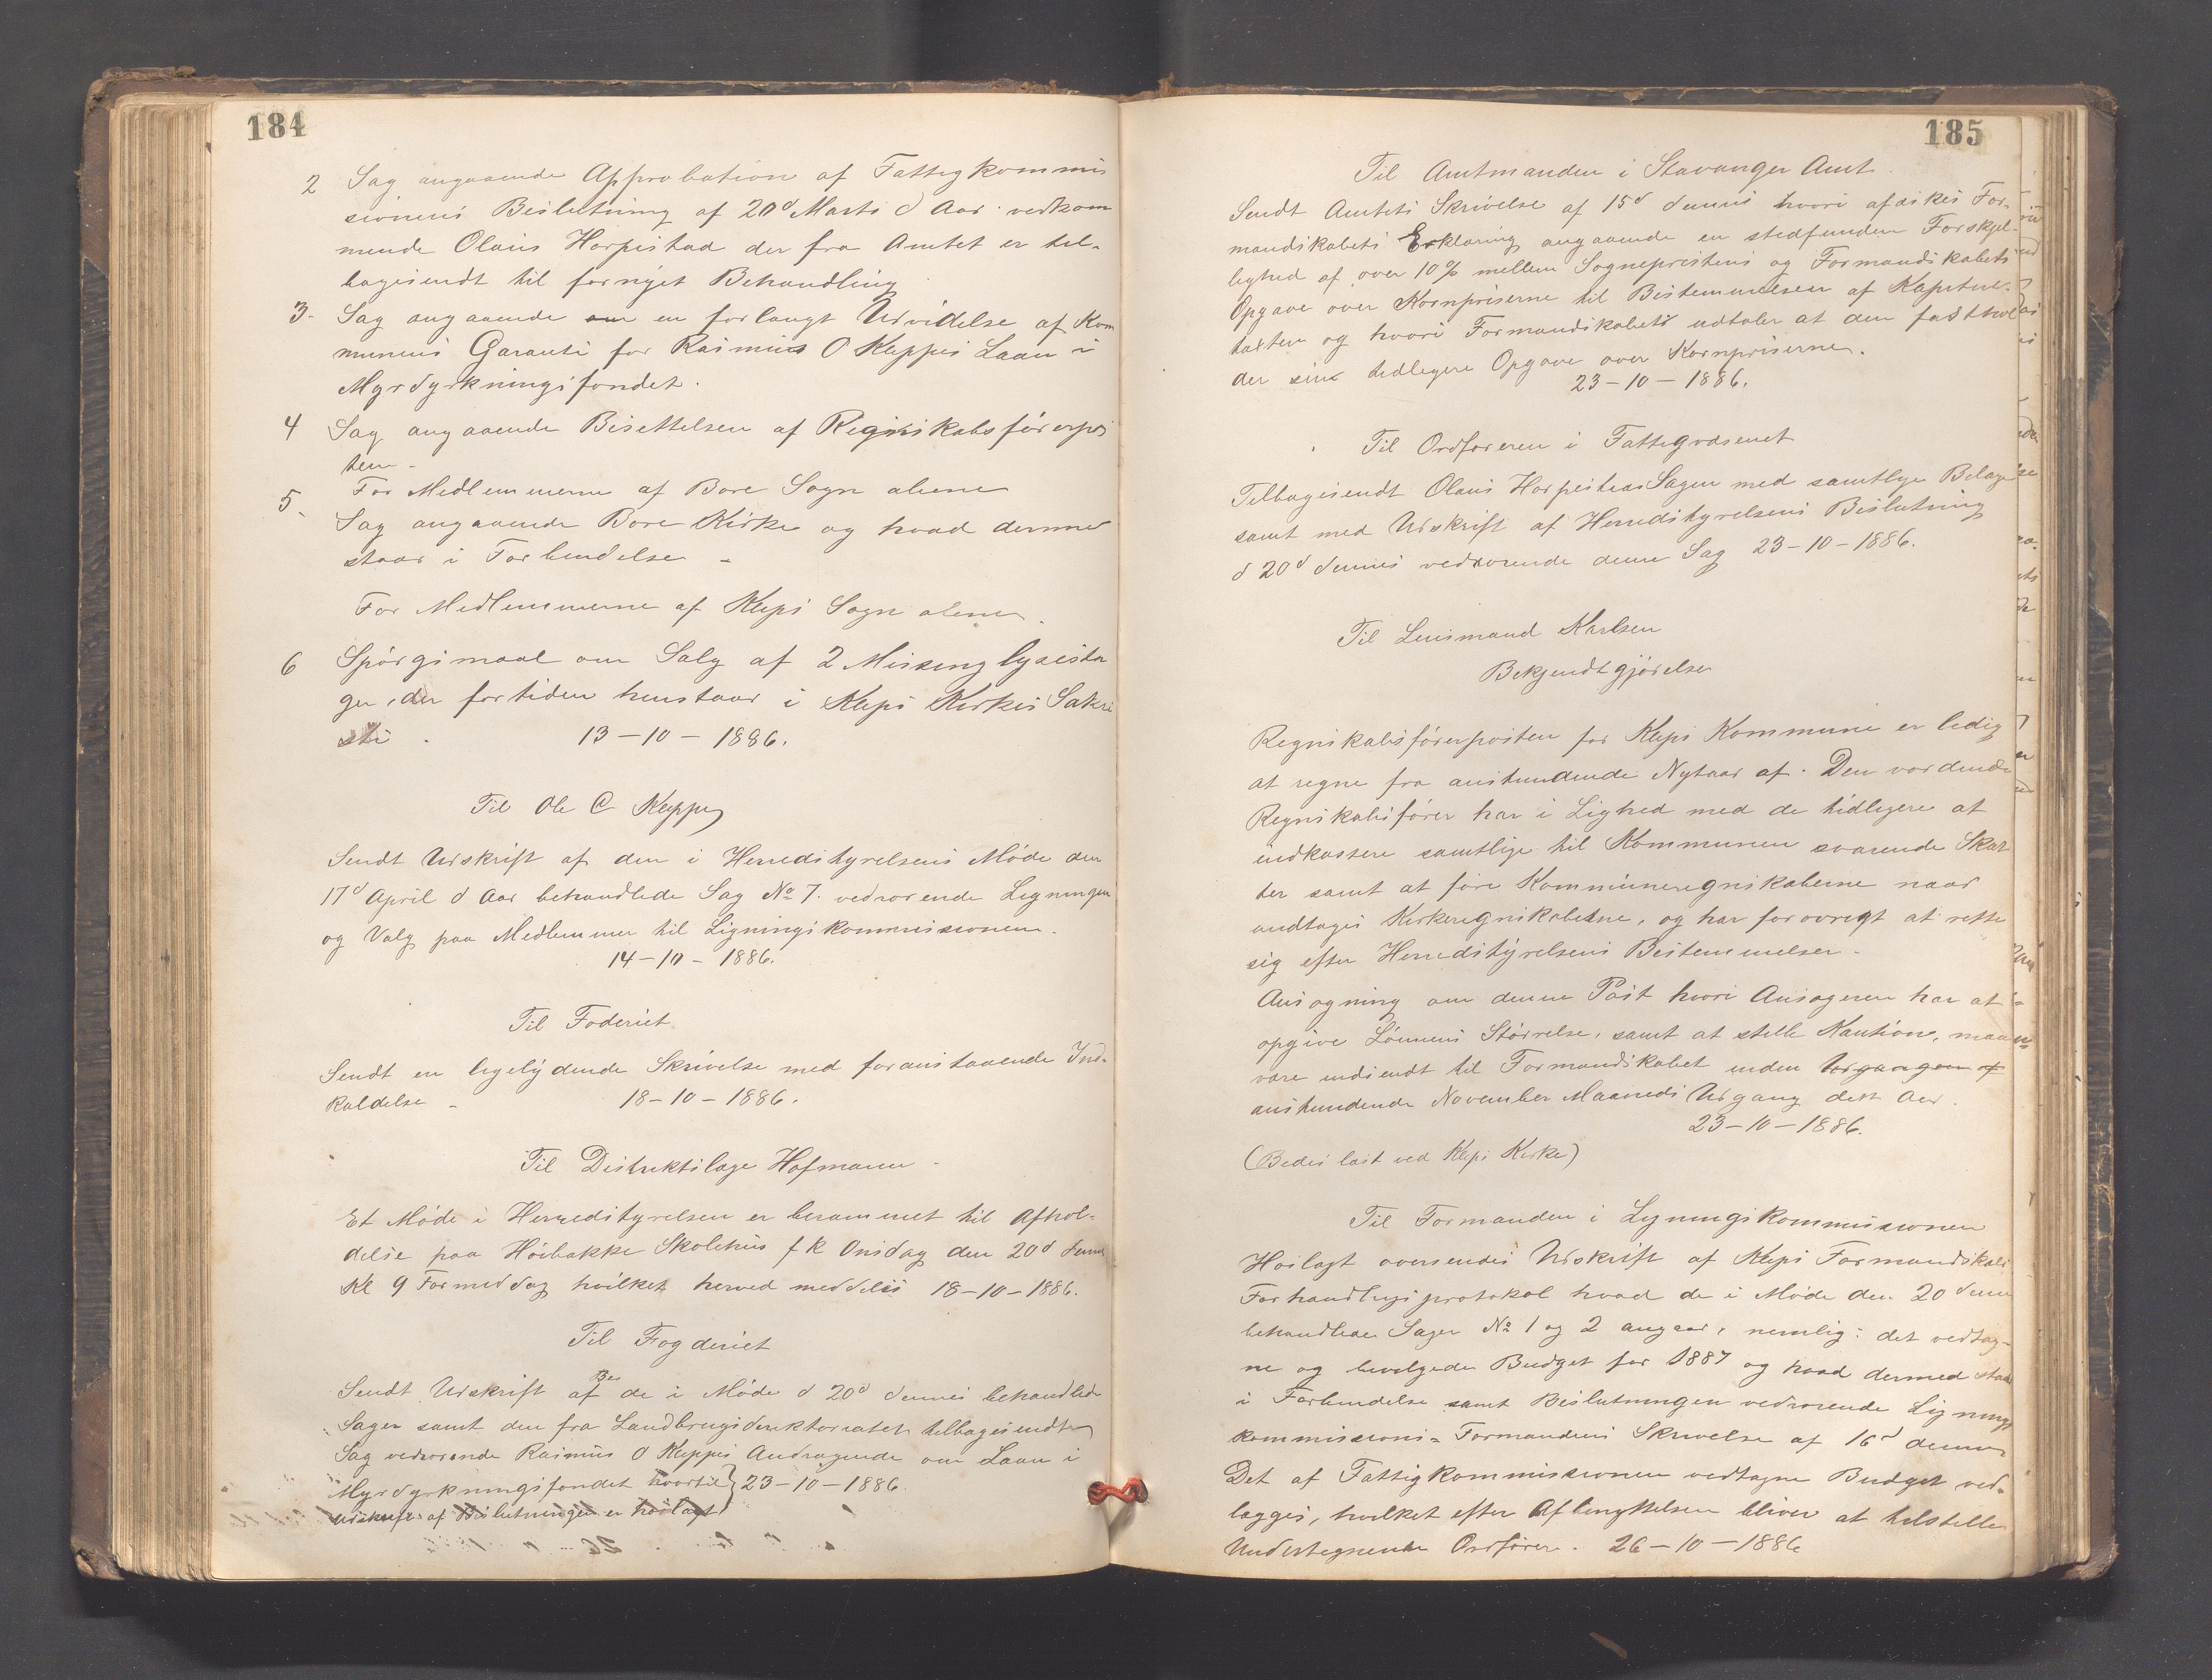 184
2 Sag angaaende Approbation af Fattigkommis
sionens Beslutning af 20d Marts d Aar vedkom
mende Olaus Horpestad der fra Amtet er til-
bagesendt til fornyet Behandling
3. Sag angaaende en forlangt Udvidelse af Kom
munens Garanti for Rasmus O Kleppes Laan i
Myrdyrkningsfondet.
4 Sag angaaende Besettelsen af Regnskabsførerpos
ten -
For Medlemmerne af Bore Sogn alene
5. Sag angaaende Bore Kirke og hvad dermed
staar i Forbindelse -
For Medlemmerne af Kleps Sogn alene.
6 Spørgsmaal om Salg af 2 Messing lysesta
ger, der fortiden henstaar i Kleps Kirkes Sakri
sti. 13-10-1886.
Til Ole C Kleppe
Sendt Udskrift af den i Herredstyrelsens Møde den
17d April d Aar behandlede Sag No 7. vedrørende Ligningen
og Valg paa Medlemmer til Ligningskommissionen.
14-10-1886.
Til Foderiet
Sendt en ligelydende Skrivelse med foranstaaende Ind-
kaldelse - 18-10-1886.
Til Distriktslæge Hofmann -
Et Møde i Herredstyrelsen er berammet til Afhol-
delse paa Høibakke Skolehus f k Onsdag den 20d dennes
Kl 9 Formiddag hvilket herved meddeles 18-10-1886.
Til Fogderiet
Bes
Sendt Udskrift af de i Møde d 20d dennes behandlede
Sager samt den fra Landbrugsdirektoratet tilbagesendte
Sag vedrørende Rasmus O Kleppes Andragende om Laan i
Myrdyrkningsfondet hvortil } 23-10-1886.
Udskrift af Beslutningen er hoslagt
185
Til Amtmanden i Stavanger Amt.
Sendt Amtets Skrivelse af 15d dennes hvori afæskes For-
mandskabets Erklæring angaaende en stedfunden Forskjel-
lighed af over 10% mellem Sogneprestens og Formandskabets
Opgave over Kornpriserne til Bestemmelsen af Kapitels-
taxten og hvori Formandskabet udtaler at den fasthol
der sine tidligere Opgave over Kornpriserne.
23-10-1886.
Til Ordføreren i Fattigvæsenet
Tilbagesendt Olaus Horpestads Sagen med samtlige Bilage
samt med Udskrift af Herredstyrelsens Beslutning
d 20d dennes vedrørende denne Sag 23-10-1886.
Til Lensmand Karlsen
Bekjendtgjørelse
Regnskabsførerposten for Kleps Kommune er ledig
at regne fra anstundende Nytaar af. Den vordende
Regnskabsfører har i Lighed med de tidligere at
indkassere samtlige til Kommunen svarende Skat
ter samt at føre Kommuneregnskaberne naar
undtages Kirkeregnskaberne, og har forøvrigt at rette
sig efter Herredstyrelsens Bestemmelser -
Ansøgning om denne Post hvori Ansøgeren har at
opgive Lønnens Størrelse, samt at stelle Kaution, maa
være indsendt til Formandskabet inden Udgangen af
anstundende November Maaneds Udgang dette Aar.
23-10-1886.
(Bedes læst ved Kleps Kirke)
Til Formanden i Ligningskommissionen
Hoslagt oversendes Udskrift af Kleps Formandskabs
Forhandlingsprotokol hvad de i Møde den 20 dennes
behandlede Sager No 1 og 2 angaar, nemlig: det vedtag-
ne og bevilgede Budget for 1887 og hvad dermed staar
i Forbindelse samt Beslutningen vedrørende Lignings
kommissions-Formandens Skrivelse af 16d dennes
Det af Fattigkommissionen vedtagne Budget ved-
lægges, hvilket efter Afbenyttelsen bliver at tilstille
Undertegnede Ordfører. 26-10-1886